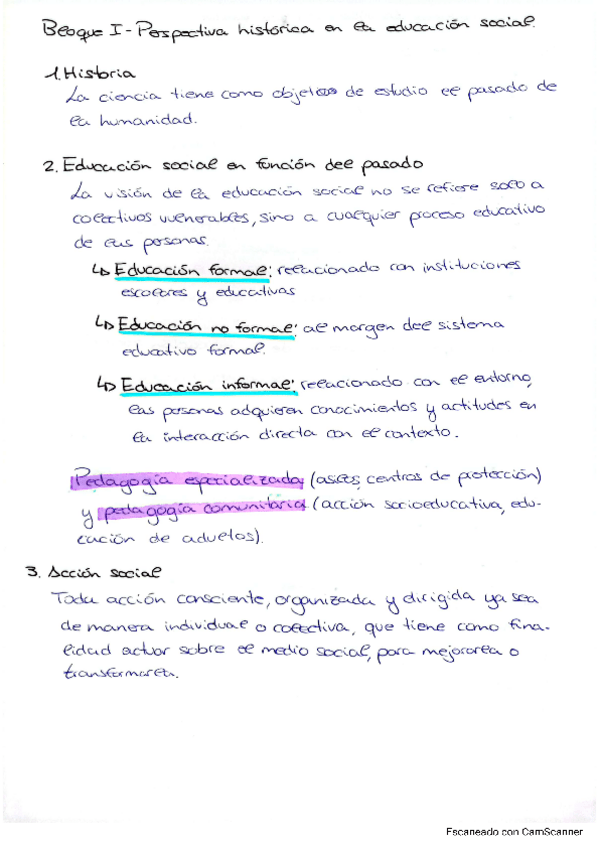 Bloque I - Perspectiva histórica en la educación social.
1. Historia
La ciencia tiene como objeto de estudio el pasado de
la humanidad.
2. Educación social en función del pasado
La visión de la educación social no se refiere solo a
colectivos vulnerables, sino a cualquier proceso educativo
de las personas.
↳ Educación formal: relacionado con instituciones
escolares y educativas
↳ Educación no formal: al margen del sistema
educativo formal.
↳ Educación informal: relacionado con el entorno,
las personas adquieren conocimientos y actitudes en
la interacción directa con el contexto.
Pedagogía especializada (asilos, centros de protección)
y pedagogía comunitaria (acción socioeducativa, edu-
cación de adultos).
3. Acción social
Toda acción consciente, organizada y dirigida ya sea
de manera individual o colectiva, que tiene como fina-
lidad actuar sobre el medio social, para mejorarla o
transformarla.
Escaneado con CamScanner